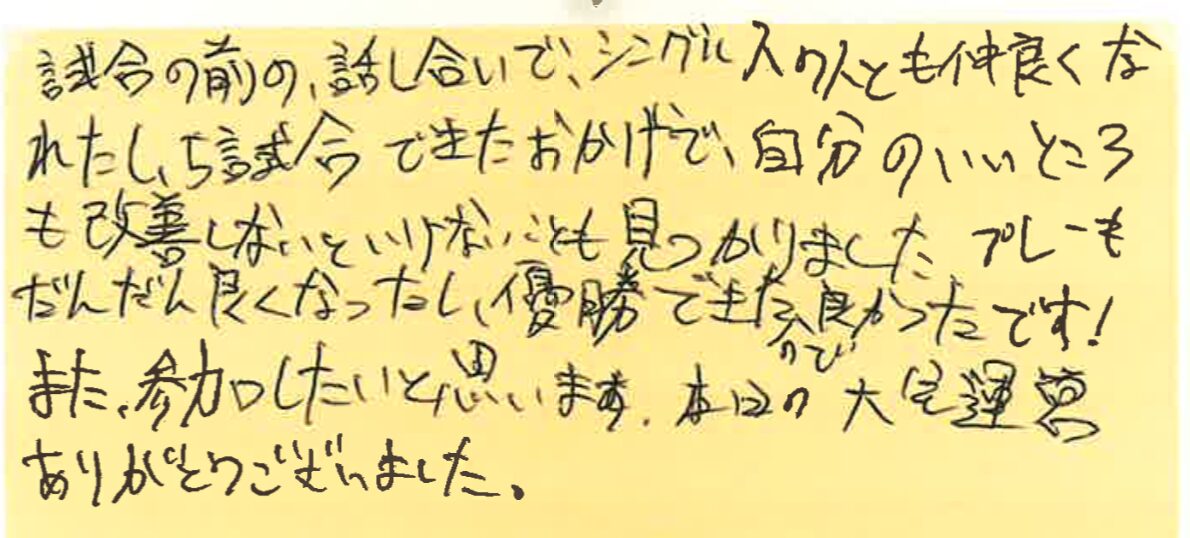 試合の前の、話し合いで、シングル入の人とも仲良くな
れたし、5試合できたおかげで、自分のいいところ
も改善しないといけないことも見つかりました。プレーも
だんだん良くなったし、優勝できたので良かったです!
また、参加したいと思います。本日の大会運営
ありがとうございました。